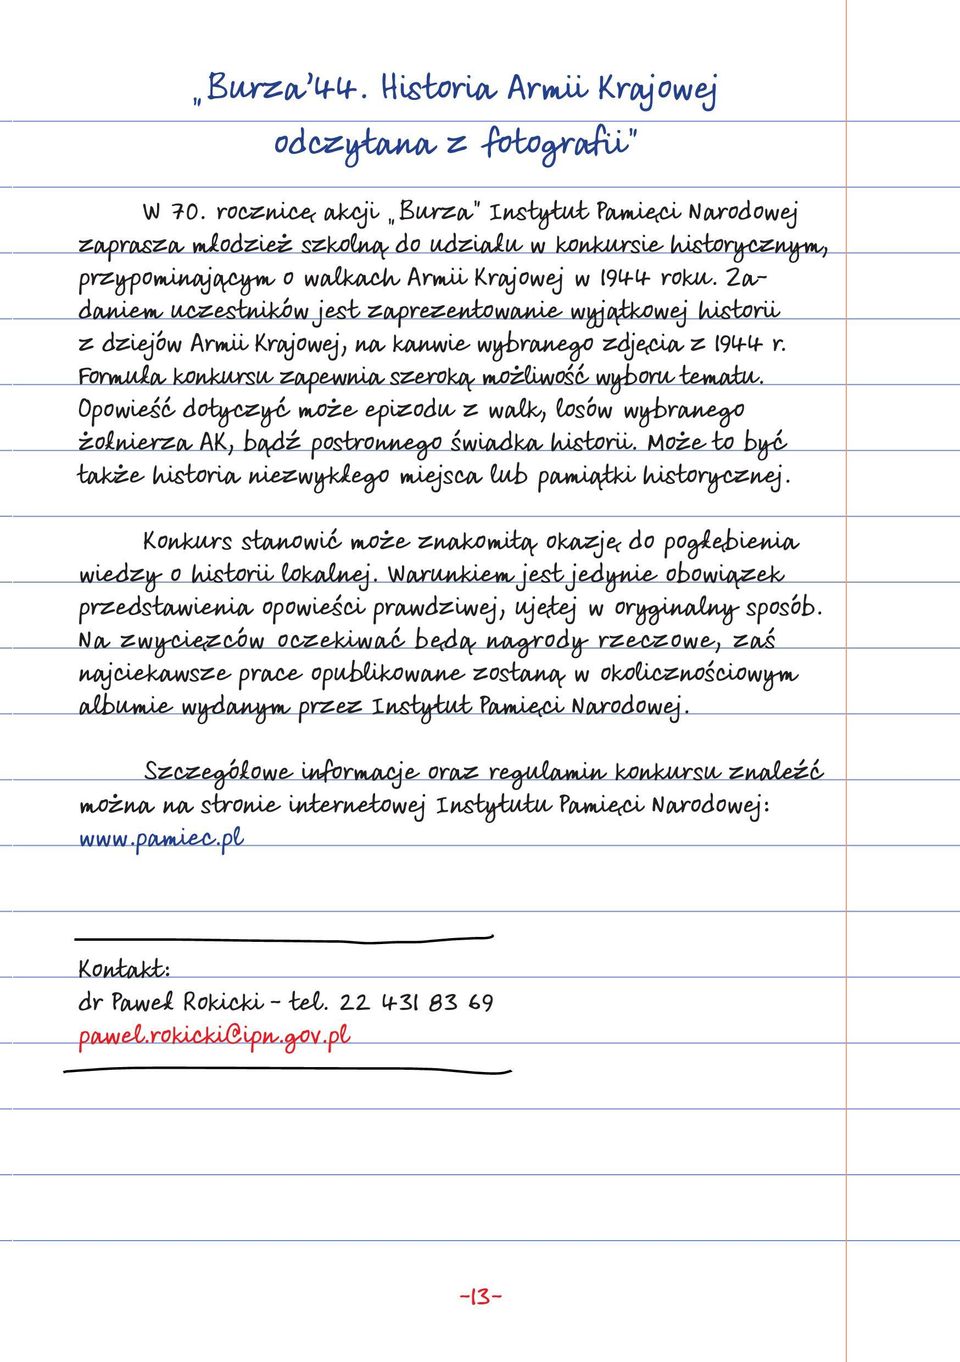 „Burza’44. Historia Armii Krajowej
odczytana z fotografii”
W 70. rocznicę akcji „Burza” Instytut Pamięci Narodowej
zaprasza młodzież szkolną do udziału w konkursie historycznym,
przypominającym o walkach Armii Krajowej w 1944 roku. Za-
daniem uczestników jest zaprezentowanie wyjątkowej historii
z dziejów Armii Krajowej, na kanwie wybranego zdjęcia z 1944 r.
Formuła konkursu zapewnia szeroką możliwość wyboru tematu.
Opowieść dotyczyć może epizodu z walk, losów wybranego
żołnierza AK, bądź postronnego świadka historii. Może to być
także historia niezwykłego miejsca lub pamiątki historycznej.
Konkurs stanowić może znakomitą okazję do pogłębienia
wiedzy o historii lokalnej. Warunkiem jest jedynie obowiązek
przedstawienia opowieści prawdziwej, ujętej w oryginalny sposób.
Na zwycięzców oczekiwać będą nagrody rzeczowe, zaś
najciekawsze prace opublikowane zostaną w okolicznościowym
albumie wydanym przez Instytut Pamięci Narodowej.
Szczegółowe informacje oraz regulamin konkursu znaleźć
można na stronie internetowej Instytutu Pamięci Narodowej:
www.pamiec.pl
Kontakt:
dr Paweł Rokicki - tel. 22 431 83 69
pawel.rokicki@ipn.gov.pl
-13-